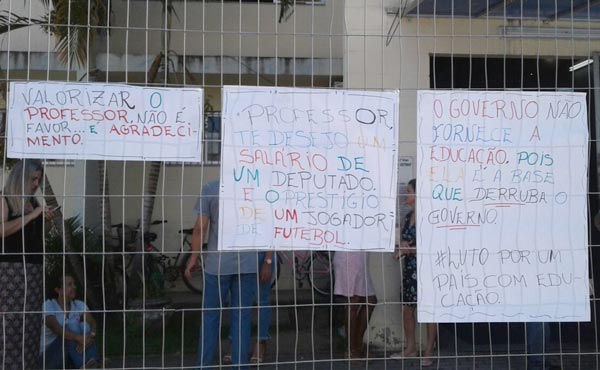 VALORIZAR O
PROFESSOR. NÃO É
FAVOR... E AGRADECI-
MENTO.
PROFESSOR,
TE DESEJO UM
SALÁRIO DE
UM DEPUTADO.
E O PRESTÍGIO
DE UM JOGADOR
DE FUTEBOL.
O GOVERNO NÃO
FORNECE A
EDUCAÇÃO. POIS
ELA É A BASE
QUE DERRUBA O
GOVERNO.
#LUTO POR UM
PAÍS COM EDU-
CAÇÃO.